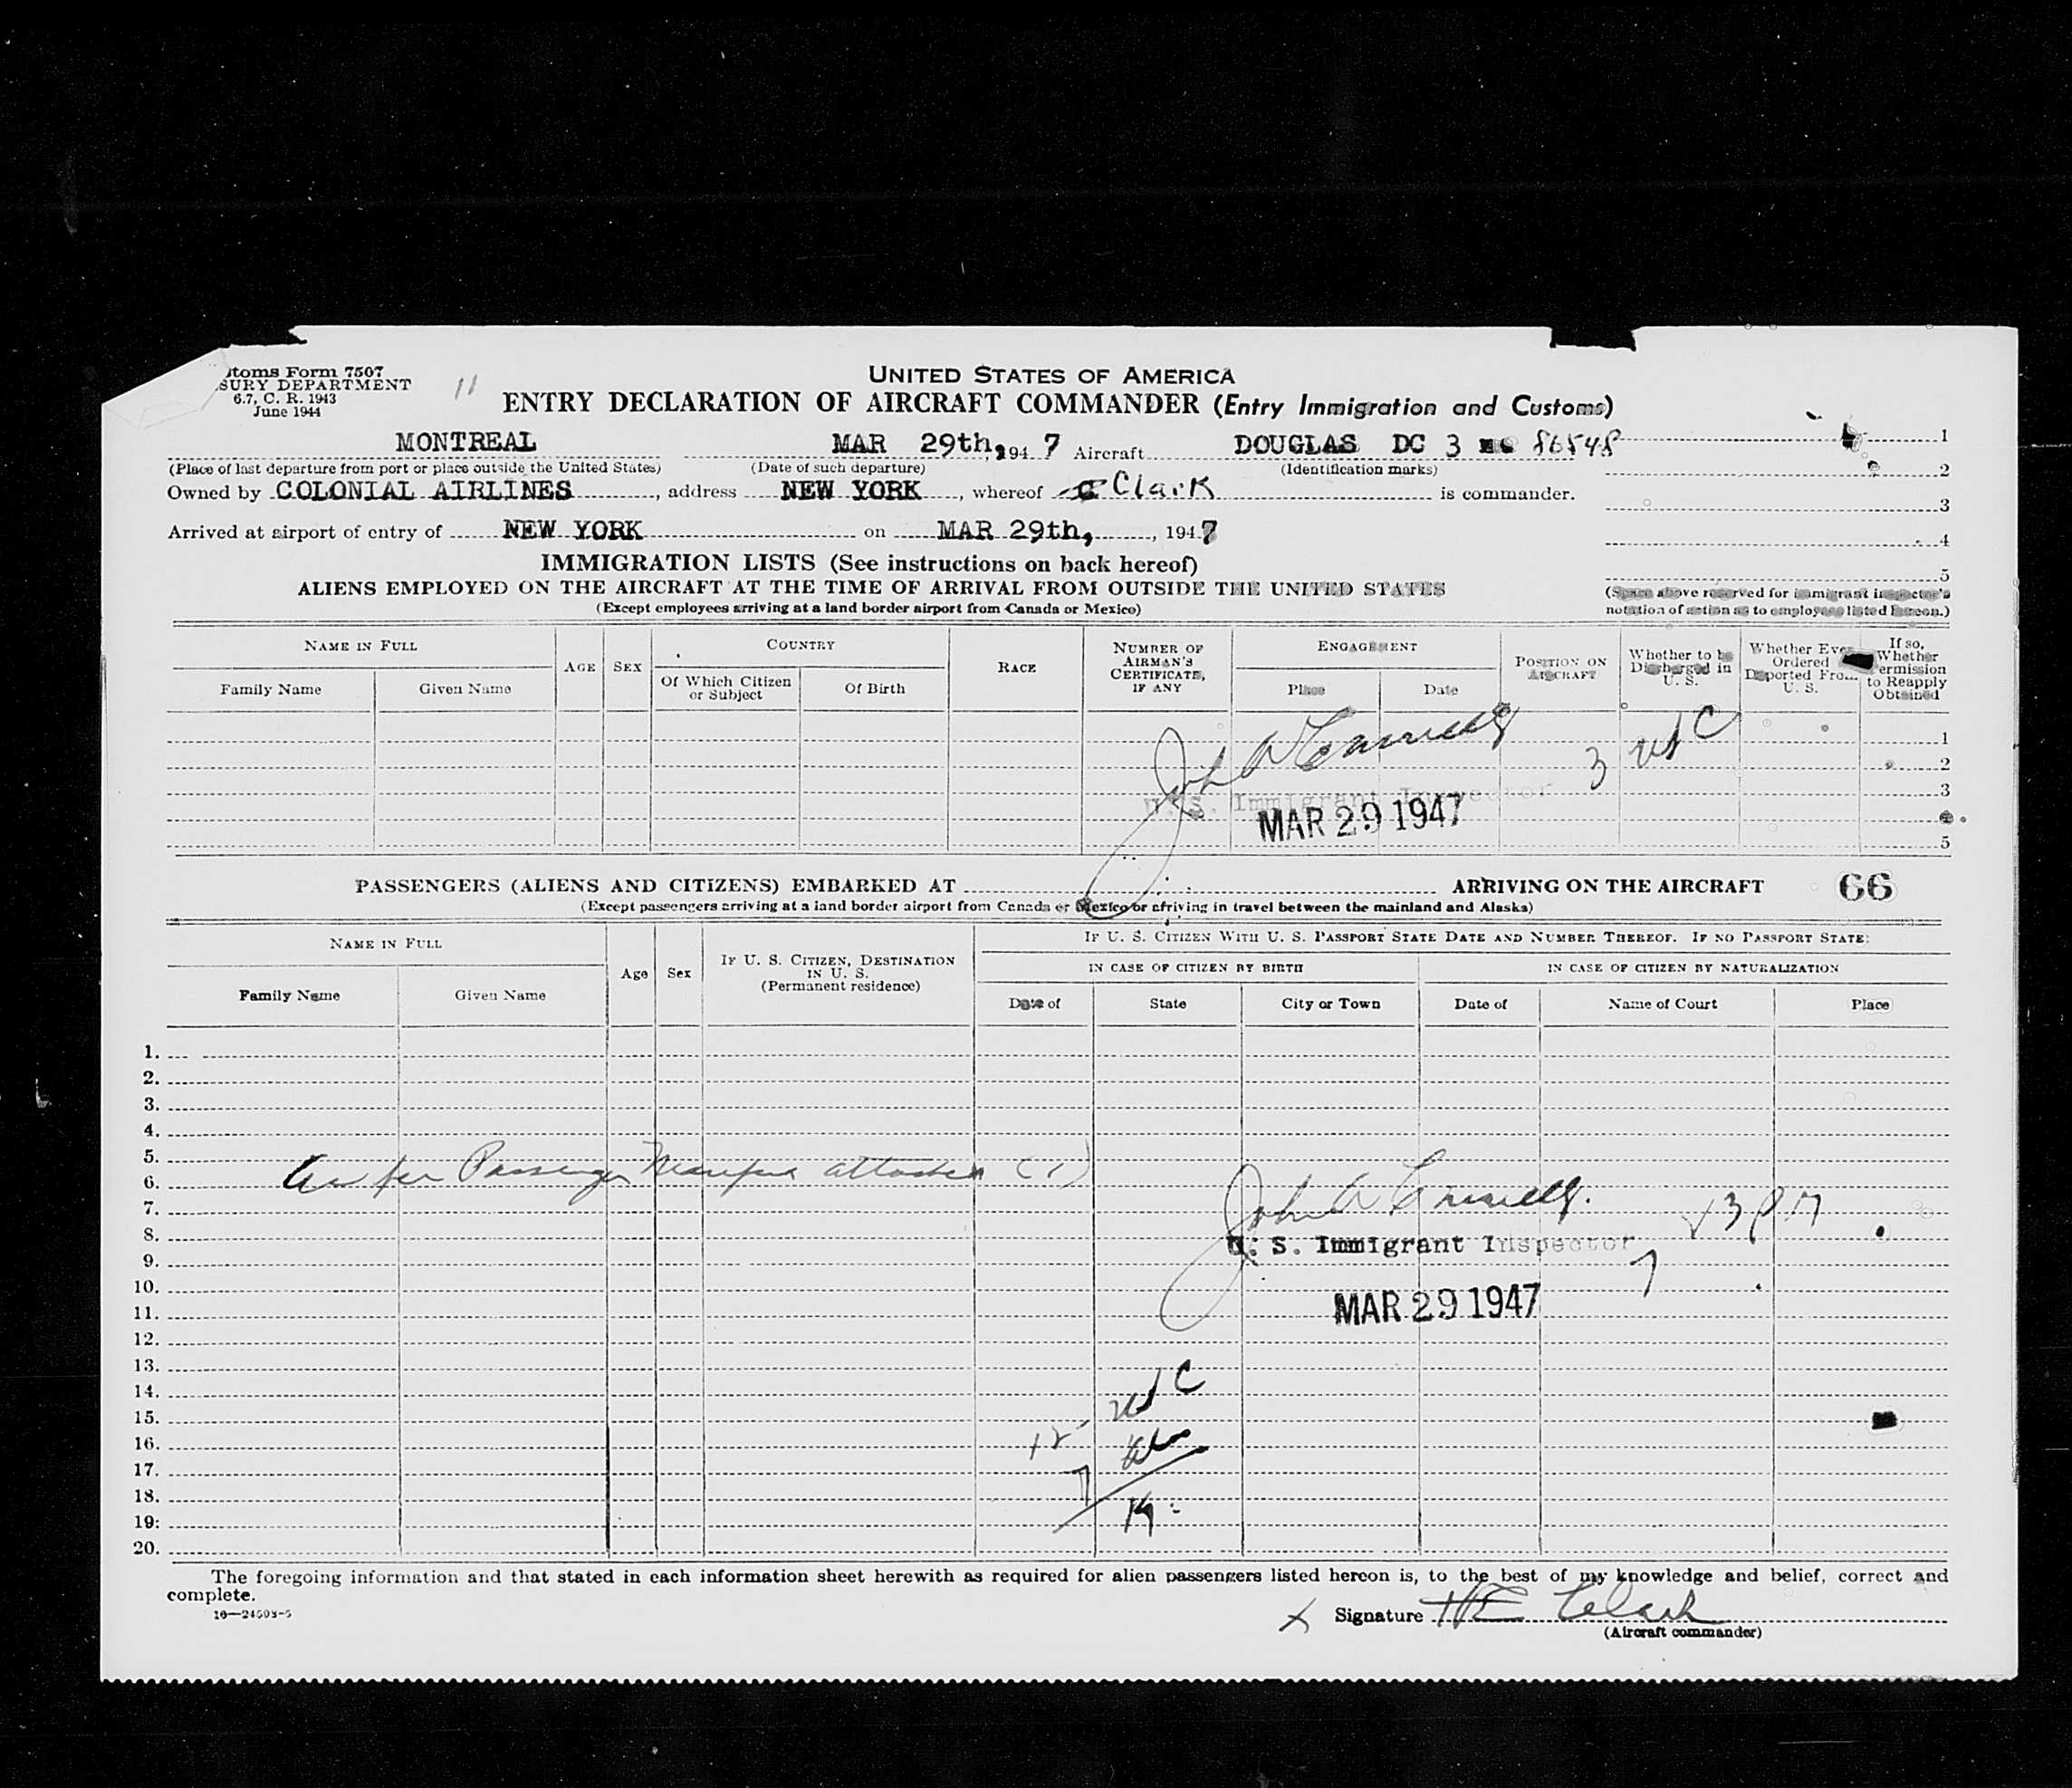 UNITED STATES OF AMERICA
toms Form 7507
SURY DEPARTMENT
6.7, C. R. 1943
June 1944
11
ENTRY DECLARATION OF AIRCRAFT COMMANDER (Entry Immigration and Customs)
MONTREAL MAR 29th, 194 7 Aircraft DOUGLAS DC 3 86548 1
(Place of last departure from port or place outside the United States) (Date of such departure) (Identification marks) 2
Owned by COLONIAL AIRLINES, address NEW YORK, whereof Clark is commander.
3
Arrived at airport of entry of NEW YORK on MAR 29th, 194 7
4
IMMIGRATION LISTS (See instructions on back hereof)
5
ALIENS EMPLOYED ON THE AIRCRAFT AT THE TIME OF ARRIVAL FROM OUTSIDE THE UNITED STATES
(Space above reserved for immigrant inspector's
(Except employees arriving at a land border airport from Canada or Mexico)
notation of action as to employees listed hereon.)
NAME IN FULL
Family Name
Given Name
AGE
SEX
COUNTRY
Of Which Citizen
or Subject
Of Birth
RACE
NUMBER OF
AIRMAN'S
CERTIFICATE,
IF ANY
ENGAGEMENT
Place
Date
POSITION ON
AIRCRAFT
Whether to be
Discharged in
U. S.
Whether Ever
Ordered
Deported From
U. S.
If so,
Whether
ermission
to Reapply
Obtained
1
2
3
5
3 US C
U.S. Immigrant Inspector
MAR 29 1947
PASSENGERS (ALIENS AND CITIZENS) EMBARKED AT ARRIVING ON THE AIRCRAFT 66
(Except passengers arriving at a land border airport from Canada or Mexico or arriving in travel between the mainland and Alaska)
NAME IN FULL
Family Name
Given Name
Age
Sex
IF U. S. CITIZEN, DESTINATION
IN U. S.
(Permanent residence)
IF U. S. CITIZEN WITH U. S. PASSPORT STATE DATE AND NUMBER THEREOF. IF NO PASSPORT STATE:
IN CASE OF CITIZEN BY BIRTH
IN CASE OF CITIZEN BY NATURALIZATION
Date of
State
City or Town
Date of
Name of Court
Place
1.
2.
3.
4.
5.
6. As per Passenger Manifest attached (1)
7.
8.
U. S. Immigrant Inspector
9.
10.
11.
MAR 29 1947
12.
13.
14.
US C
15.
16.
12
17.
7
18.
19:
19
20.
The foregoing information and that stated in each information sheet herewith as required for alien passengers listed hereon is, to the best of my knowledge and belief, correct and
complete.
16—24593-5
X Signature HE Clark
(Aircraft commander)